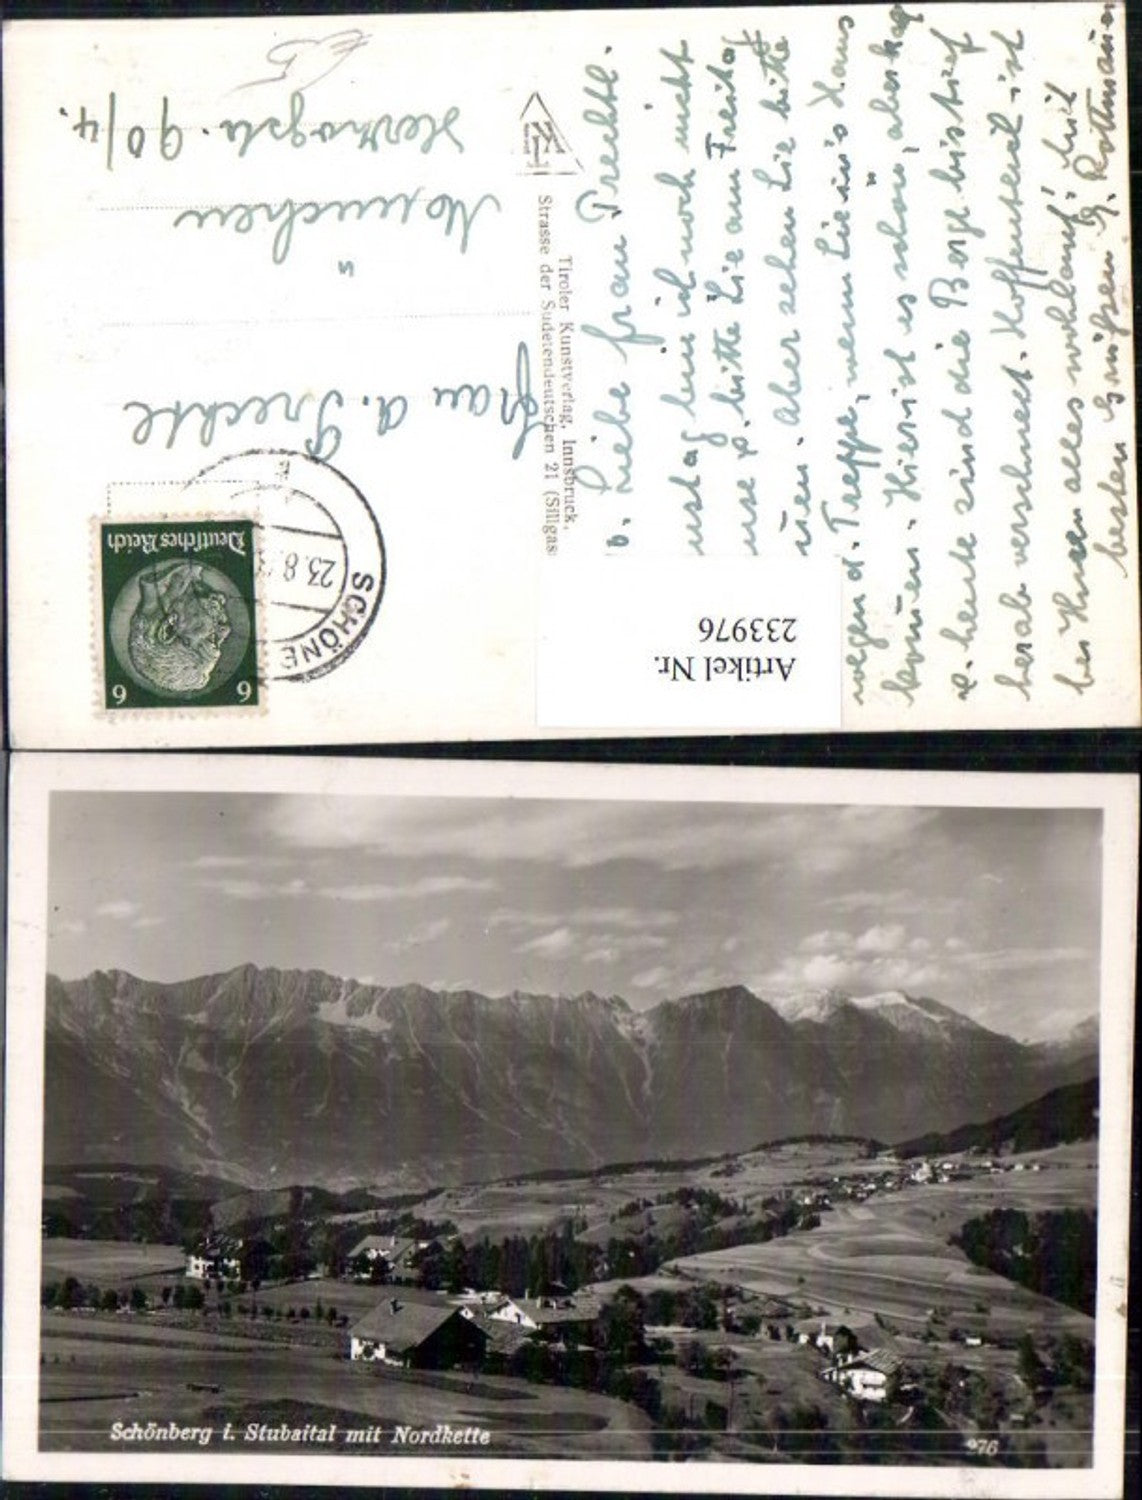 Frau A. Prechtl
München
Herzogstr. 90/4.
Deutsches Reich
6 6
SCHÖNB
23.8.
Tiroler Kunstverlag, Innsbruck,
Strasse der Sudetendeutschen 21 (Sillgas
Artikel Nr.
233976
Liebe Frau Prechtl.
bin ich noch nicht
bitte Sie am Freitag
Aber sehen Sie bitte
wegen d. Treppe, wenn Sie in's Haus
kommen. Hier ist es schön, aber
u. heute sind die Berge bis tief
herab verschneit. Hoffentlich ist
bei Ihnen alles wohlauf! Mit
besten Grüßen
Schönberg i. Stubaital mit Nordkette
976